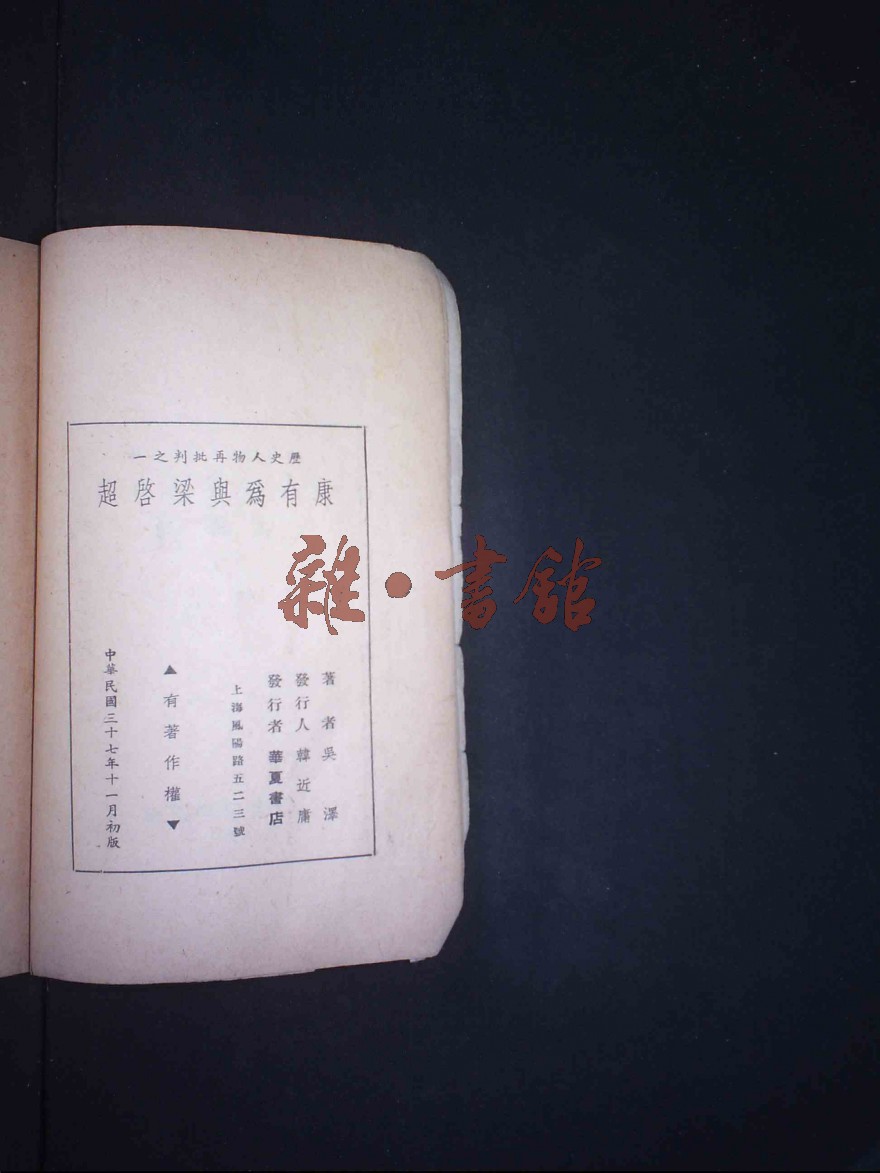 歷史人物再批判之一
康有爲與梁啓超
著者吳澤
發行人韓近庸
發行者華夏書店
上海鳳陽路五二三號
▲有著作權▼
中華民國三十七年十一月初版
雜•書館